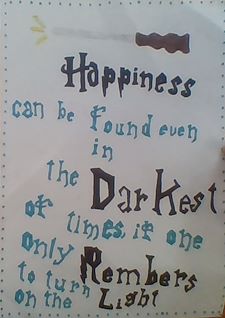 Happiness
can be found even
in
the Darkest
of times, if one
only Rembers
to turn
on the Light